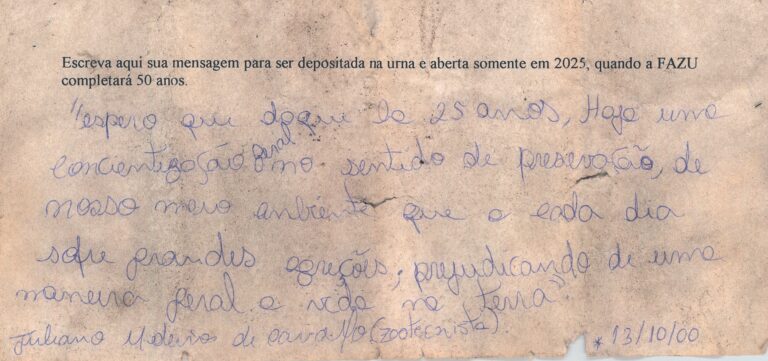 Escreva aqui sua mensagem para ser depositada na urna e aberta somente em 2025, quando a FAZU
completará 50 anos.
"espero que daqui le 25 anos, Haja uma
geral
concientização no sentido de preservação, de
nosso meio anbiente que a cada dia
sofre grandes agreções, prejudicando de uma
maneira geral a vida na terra"
Juliano Medeiros de (zootecnista). * 13/10/00